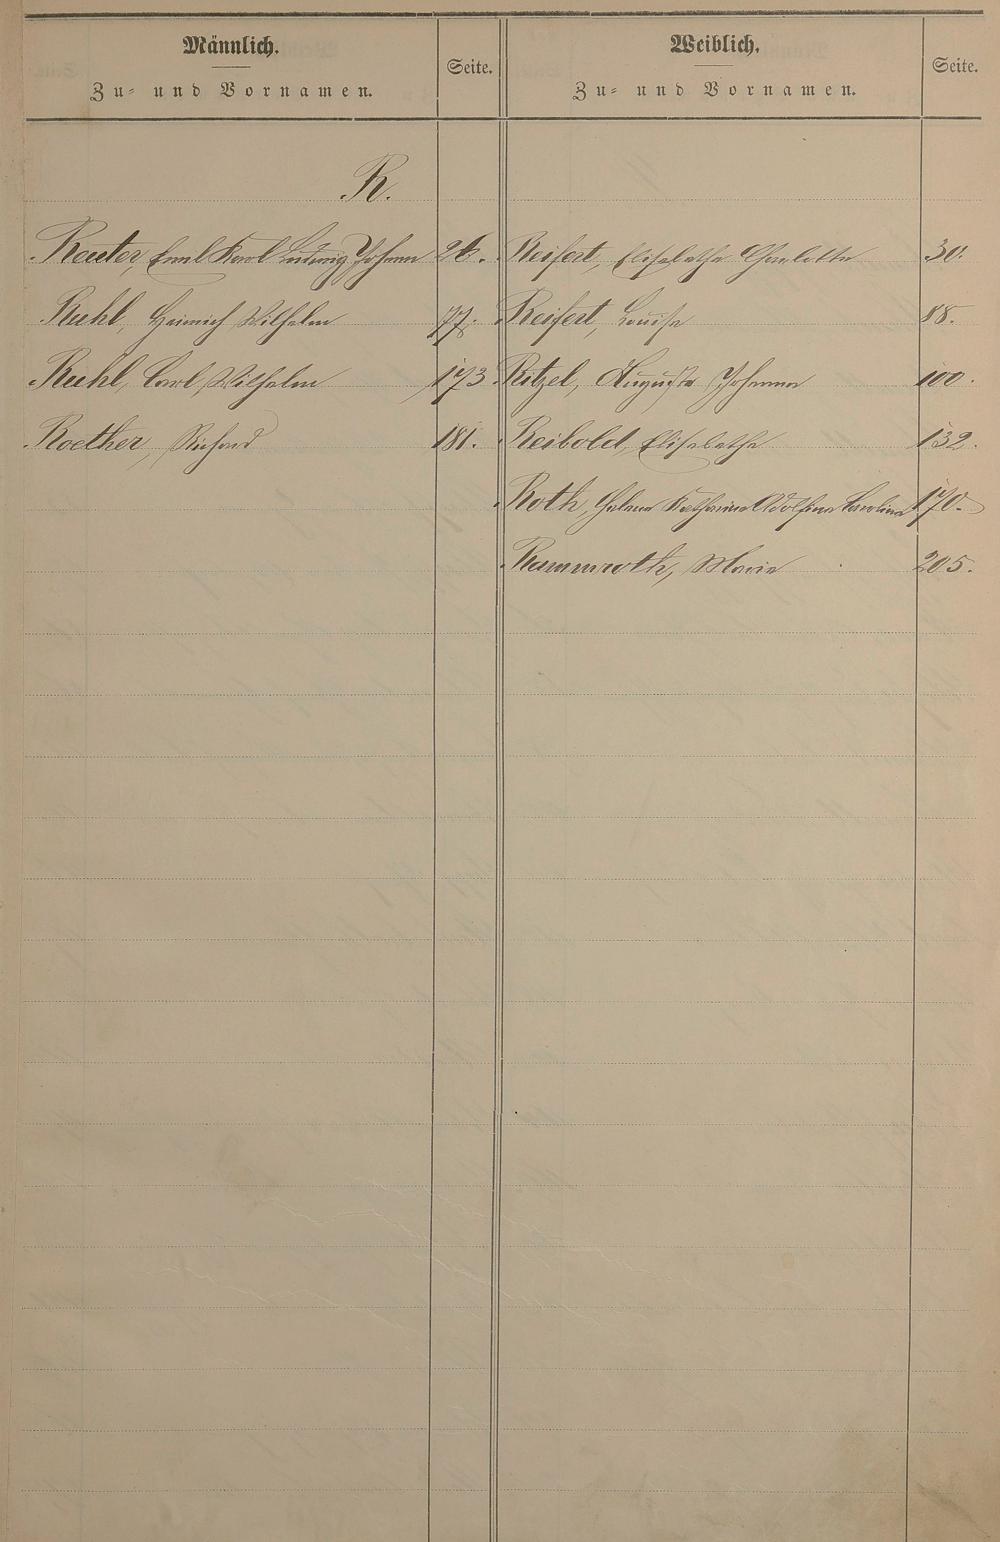 Männlich.
Zu- und Vornamen.
Seite.
Weiblich.
Zu- und Vornamen.
Seite.
R.
Reuter Emil Karl Ludwig Johann 26.
Ruhl, Heinrich Wilhelm 77.
Ruhl, Carl Wilhelm 173
Roether, Richard 181.
Reifert, Elisabethe Charlotte 30.
Reifert, Louise 88.
Ritzel, Auguste Johanna 100.
Reibold, Elisabethe 132.
Roth, Helena Katharina Adolfina Carolina 170.
Rammroth, Marie 205.